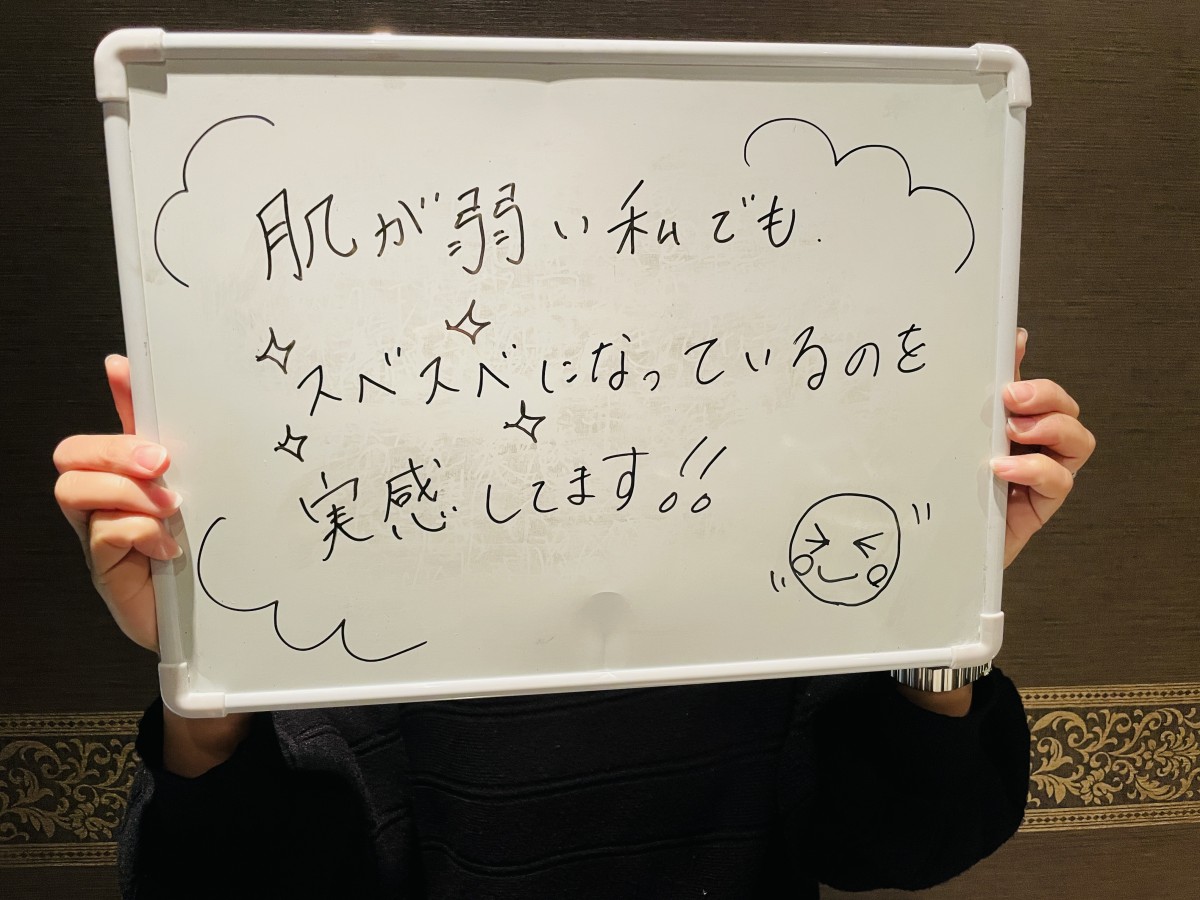 肌が弱い私でも.
スベスベになっているのを
実感してます!!